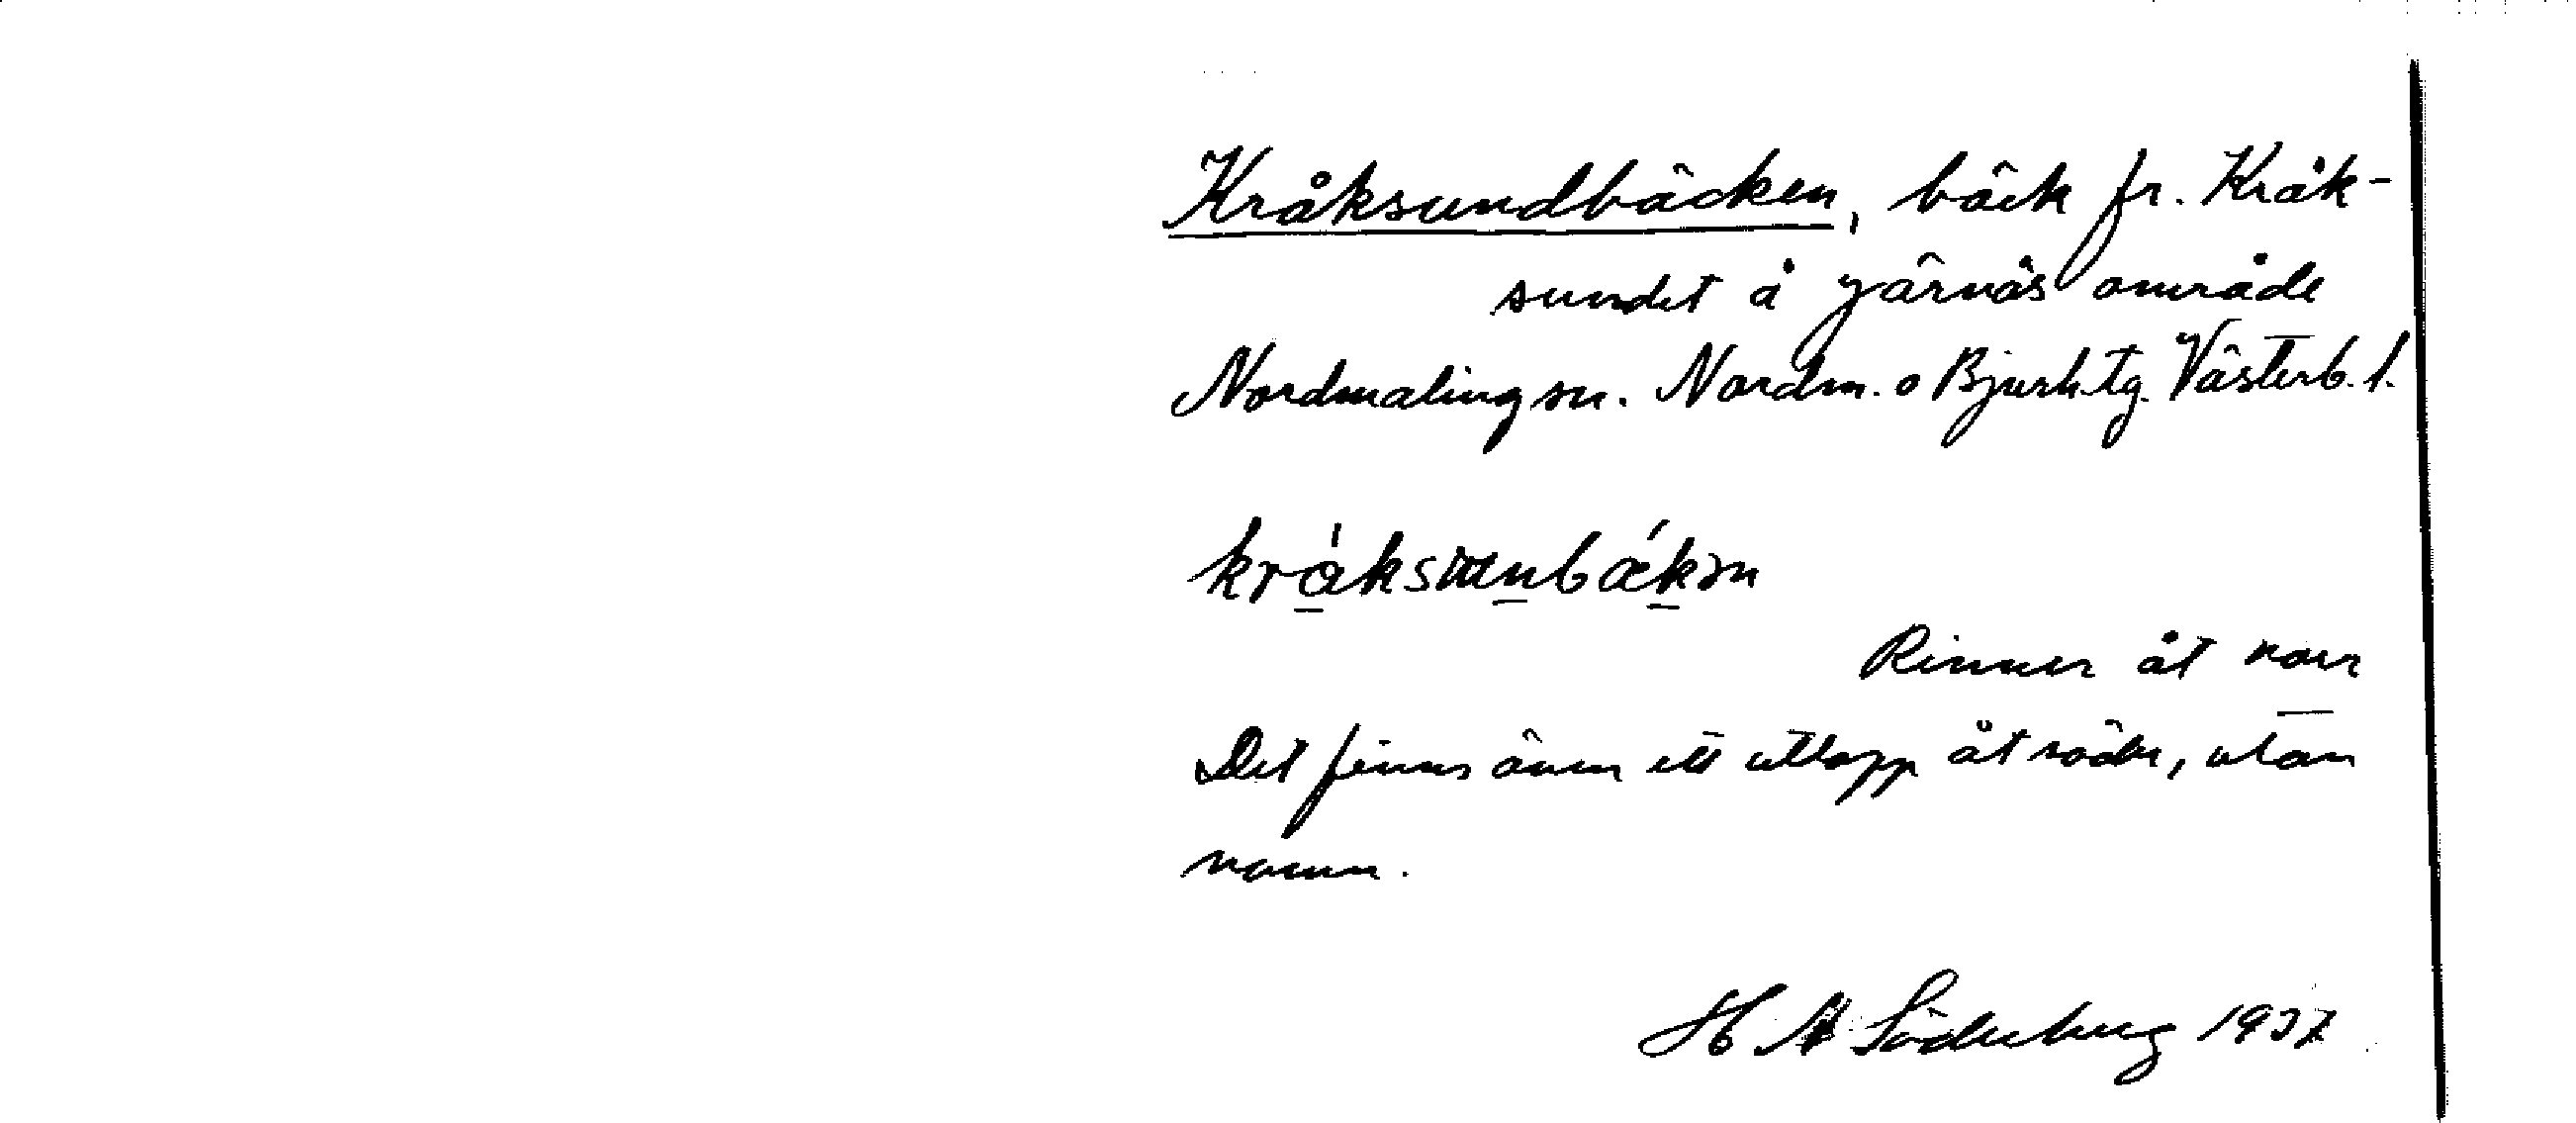 Kråksundbäcken, bäck fr. Kråk-
sundet å Järnäs område
Nordmaling sn. Nordm. o Bjurh. tg. Västerb. l.
Rinner åt norr
Det finns även ett utlopp åt söder, utan
namn.
H A Söderberg 1937